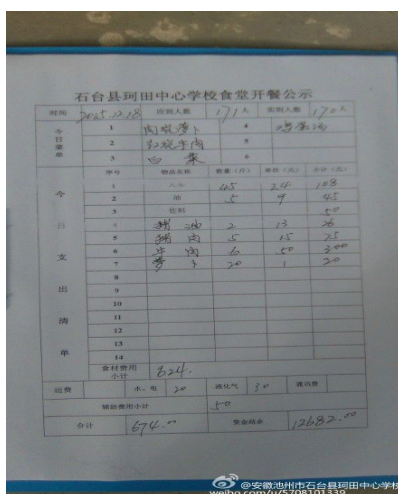 石台县珂田中心学校食堂开餐公示
时间 2015.12.18 应到人数 171人 实到人数 170人
今日菜单 1 肉烧萝卜 4 鸡蛋汤
2 红烧牛肉 5
3 白菜 6
今日支出清单 序号 物品名称 数量(斤) 单价(元) 小计(元)
1 大米 45 2.4 108
2 油 5 9 45
3 佐料 50
4 猪油 2 13 26
5 猪肉 5 15 75
6 牛肉 6 50 300
7 萝卜 20 1 20
8
9
10
11
12
13
14
食材费用小计 624.
运费 水、电 20 液化气 30 通讯费
辅助费用小计 50
合计 674.00 资金结余 12682.00
@安徽池州市石台县珂田中心学校
weibo.com/u/5708101339